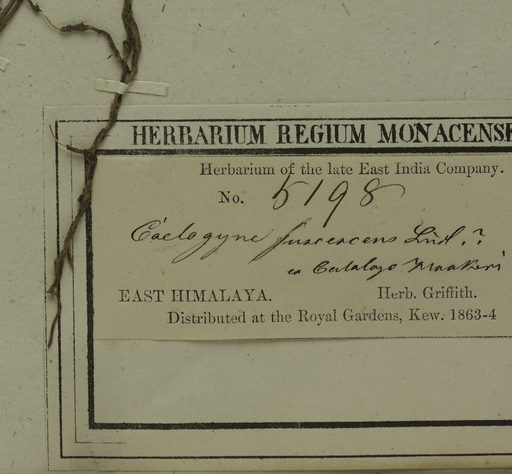 HERBARIUM REGIUM MONACENSE
Herbarium of the late East India Company.
No. 5198
Coelogyne fuscescens Lindl.?
ex Catalogo
EAST HIMALAYA. Herb. Griffith.
Distributed at the Royal Gardens, Kew. 1863-4